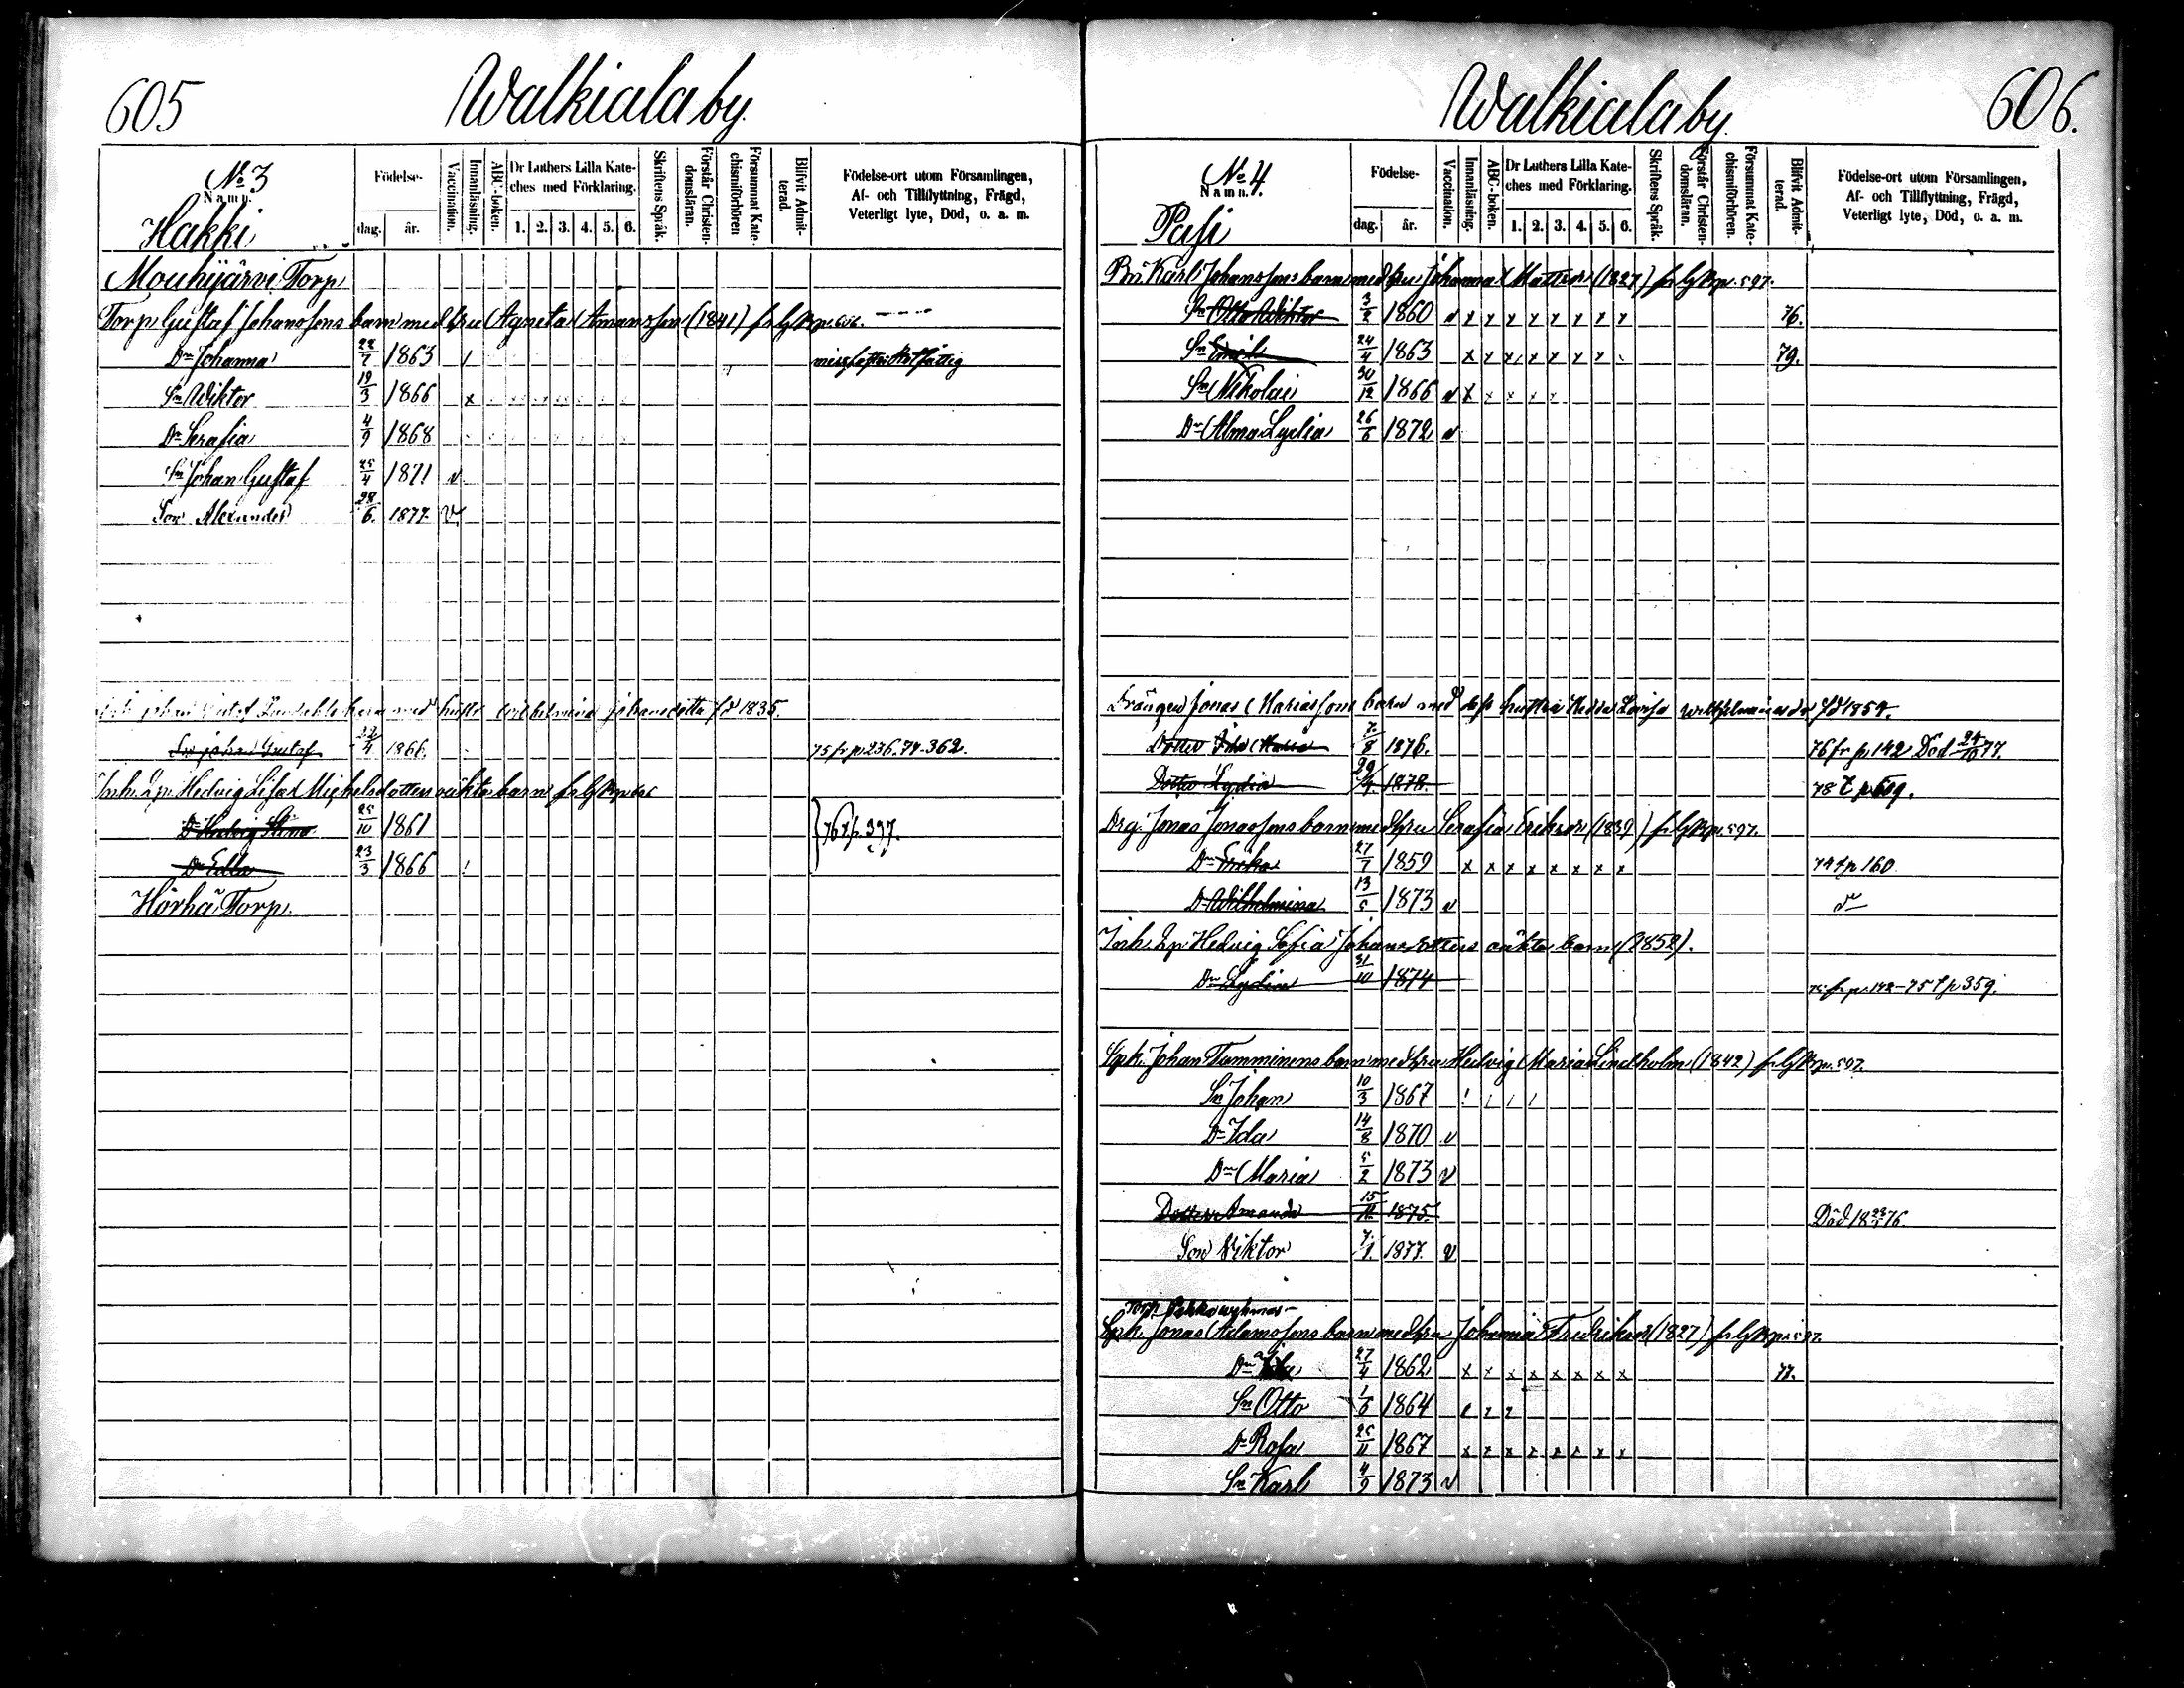 605
Walkiala by.
No 3
Namn.
Hakki
Födelse-
dag.
år.
Vaccination.
Innanläsning.
ABC-boken.
Dr Luthers Lilla Kate-
ches med Förklaring.
1. 2. 3. 4. 5. 6.
Skriftens Språk.
Förstår Christen-
domsläran.
Försummat Kate-
chismiförhören
Blifvit Admit-
terad.
Födelse-ort utom Församlingen,
Af- och Tillflyttning, Frägd,
Veterligt lyte, Död, o. a. m.
Mouhijärvi Torp
Torp. Gustaf Johanssons barn med hru Agneta Amansson (1841) fr lgs Kbp. 606.
Dr Johanna 22/7 1863
Sn Wiktor 19/3 1866 x
Dr Serafia 4/9 1868
Sn Johan Gustaf 25/4 1871 v
Son Alexander 28/6. 1877. v.
Johan Gustaf barn med hustr. Wilhelmina Johansdotter fd 1835.
Son Johan Gustaf 22/4 1866. 75 fr p 236. 77. 362.
Inh. Hedvig Lisa Michelsdotters oäkta barn fr lgs Kbp
Dr Hedvig Stina 25/10 1861 76 t p. 397.
Dr Edla 23/3 1866
Hörhä Torp.
606.
Walkiala by
No 4.
Namn.
Pasi
Födelse-
dag.
år.
Vaccination.
Innanläsning.
ABC-boken.
Dr Luthers Lilla Kate-
ches med Förklaring.
1. 2. 3. 4. 5. 6.
Skriftens Språk.
Förstår Christen-
domsläran.
Försummat Kate-
chismiförhören.
Blifvit Admit-
terad.
Födelse-ort utom Församlingen,
Af- och Tillflyttning, Frägd,
Veterligt lyte, Död, o. a. m.
Bn Karl Johanssons barn med hru Johanna Mattsdr (1827) fr lgs Kbp. 597.
Sn Otto Wiktor 3/2 1860 v x x x x x x x x 76.
Sn Emil 24/4 1863 x x x x x x x 79.
Sn Nikolai 30/12 1866 v x x x x x
Dr Alma Lydia 26/6 1872 v
Drängen Jonas Mariassons barn med dess hustru Hedda Lovisa Wilhelminasdr fd 1854.
Dotter Ida Maria 7/8 1876. 76 fr p 142 Död 24/10 77.
Dotter Lydia 29/4. 1878. 78 t p 619.
Drg. Jonas Jonassons barn med hru Serafia Eriksdr (1839) fr lgs Kbp. 597.
Dr Erika 27/7 1859 x x x x x x x x 74 t p 160
Dr Wilhelmina 13/5 1873 v do
Inh. Hedvig Sofia Johansdotters oäkta barn (1852).
Dr Lydia 31/10 1874 75 fr p. 142 - 75 t p 359.
Spk. Johan Tamminens barn med hru Hedvig Maria Lindholm (1842) fr lgs Kbp. 597.
Sn Johan 10/3 1867
Dr Ida 14/8 1870 v
Dr Maria 5/2 1873 v
Dotter Amanda 15/11. 1875. Död 18 23/5 76.
Son Viktor 7/1. 1877. v
Torp.
Spk. Jonas Adamssons barn med hru Johanna Fredriksdr (1827) fr lgs Kbp. 597.
Dr Ida 27/4 1862 x x x x x x x x 77.
Sn Otto 1/6 1864
Dr Rosa 25/11 1867 x x x x x x x x
Sn Karl 4/9 1873 v